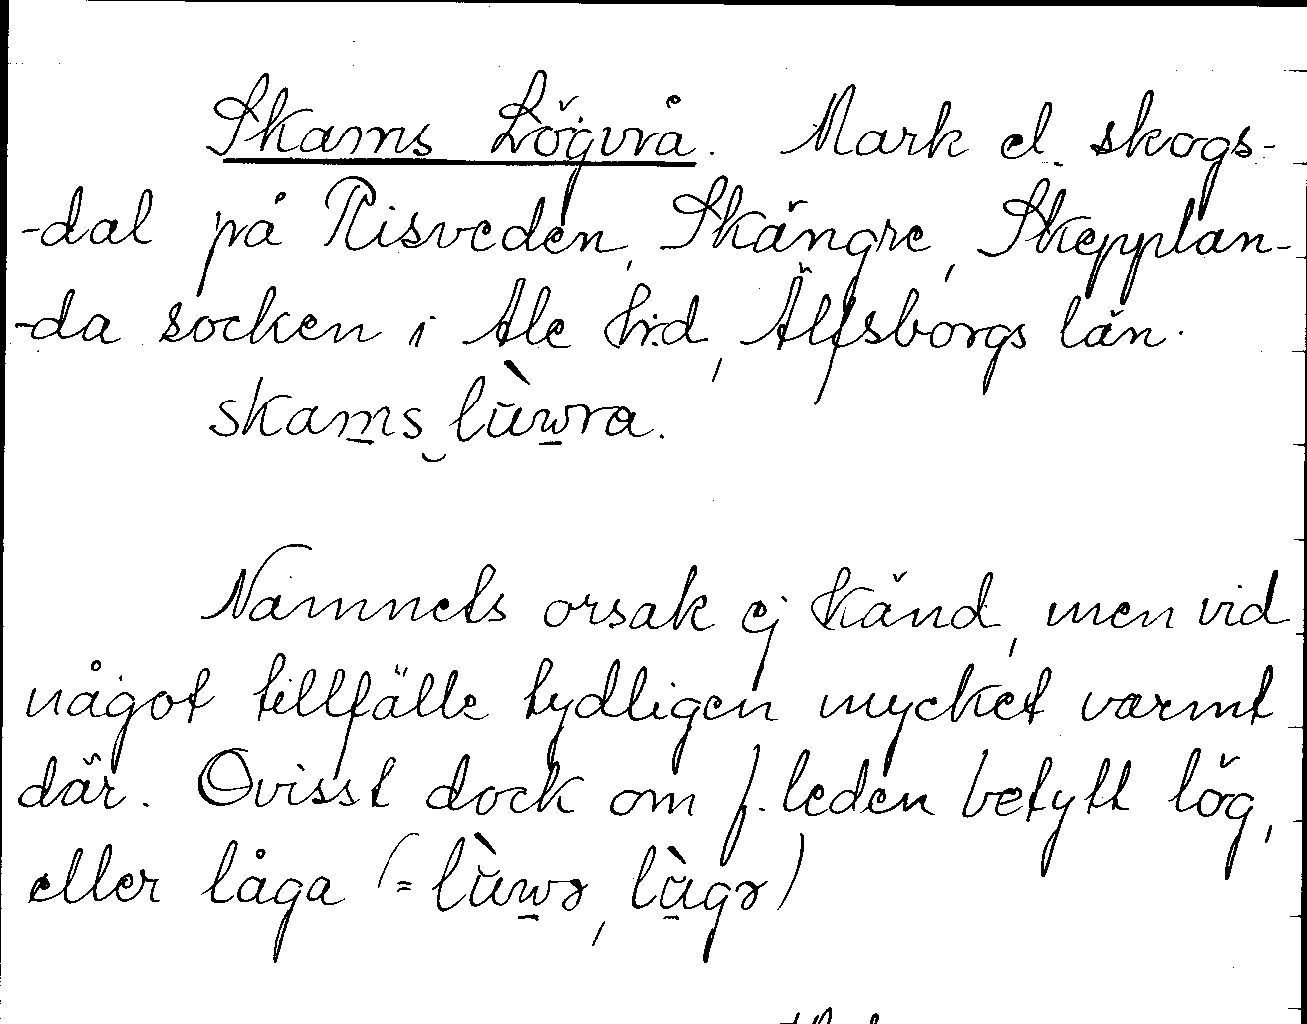 Skams Lögvrå. Mark el. skogs-
-dal på Risveden, Skängre, Skepplan-
-da socken i Ale hrd, Älfsborgs län.
skams‿lùwra.
Namnets orsak ej känd, men vid
något tillfälle tydligen mycket varmt
där. Ovisst dock om f. leden betytt lög,
eller låga (= lùwə, lùgə)